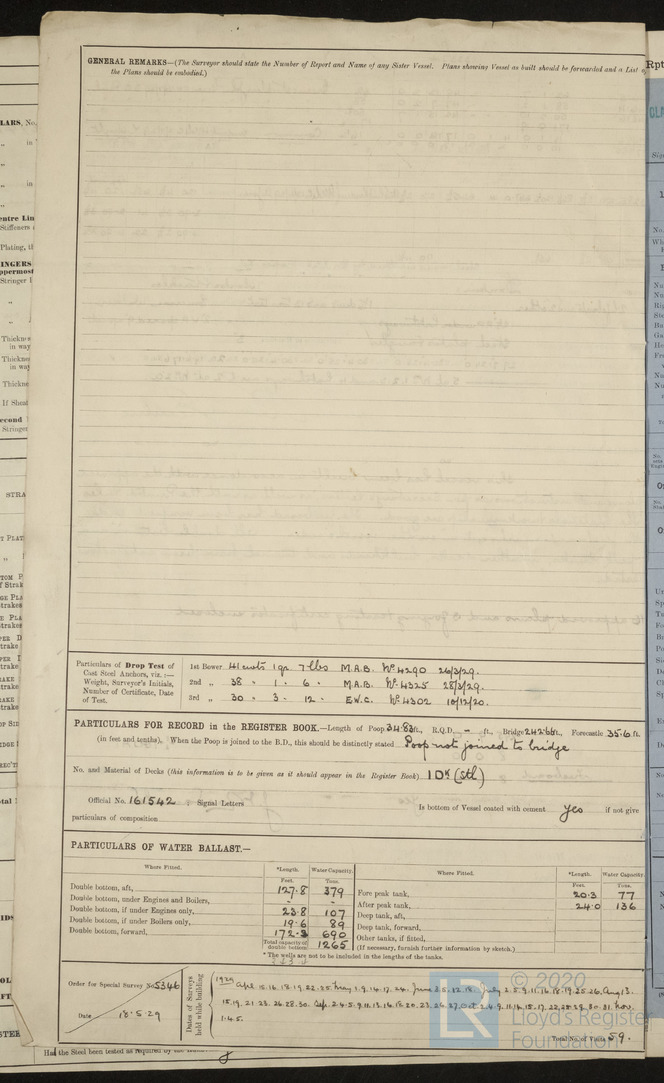 GENERAL REMARKS—(The Surveyor should state the Number of Report and Name of any Sister Vessel. Plans showing Vessel as built should be forwarded and a List
the Plans should be embodied.)
Particulars of Drop Test of
Cast Steel Anchors, viz.:—
Weight, Surveyor's Initials,
Number of Certificate, Date
of Test.
1st Bower 41 cwts 1 qr 7 lbs M.A.B. No. 4290 26/3/29.
2nd " 38 " 1 " 6 " M.A.B. No. 4325 28/3/29.
3rd " 30 " 3 " 12 " E.W.C. No. 4302 10/12/20.
PARTICULARS FOR RECORD in the REGISTER BOOK.—Length of Poop 34.83 ft., R.Q.D. - ft., Bridge 242.66 ft., Forecastle 35.6 ft.
(in feet and tenths). When the Poop is joined to the B.D., this should be distinctly stated Poop not joined to bridge
No. and Material of Decks (this information is to be given as it should appear in the Register Book) 1 Dk (stl)
Official No. 161542 ; Signal Letters Is bottom of Vessel coated with cement yes if not give
particulars of composition
PARTICULARS OF WATER BALLAST.—
Where Fitted. *Length. Water Capacity. Where Fitted. *Length. Water Capacity.
Feet. Tons. Feet. Tons.
Double bottom, aft, 127.8 379 Fore peak tank, 20.3 77
Double bottom, under Engines and Boilers, - - After peak tank, 24.0 136
Double bottom, if under Engines only, 23.8 107 Deep tank, aft,
Double bottom, if under Boilers only, 19.6 89 Deep tank, forward,
Double bottom, forward, 172.3 690 Other tanks, if fitted,
Total capacity of double bottom 1265 (If necessary, furnish further information by sketch.)
* The wells are not to be included in the lengths of the tanks.
Order for Special Survey No. 5346
Date 18.5.29
Dates of Surveys held while building
1929 Apl 15.16.18.19.22.25. May 1.9.14.17.24. June 3.5.12.18. July 2.5.9.11.16.18.19.25.26. Aug 13.
15.19.21.23.26.28.30. Sep. 2.4.5.9.11.13.16.18.20.23.26.27. Oct 2.4.9.11.14.15.17.22.25.28.30.31 Nov.
1.4.5.
Total No. of Visits 59.
© 2020
Lloyd's Register
Foundation
Has the Steel been tested as required by the